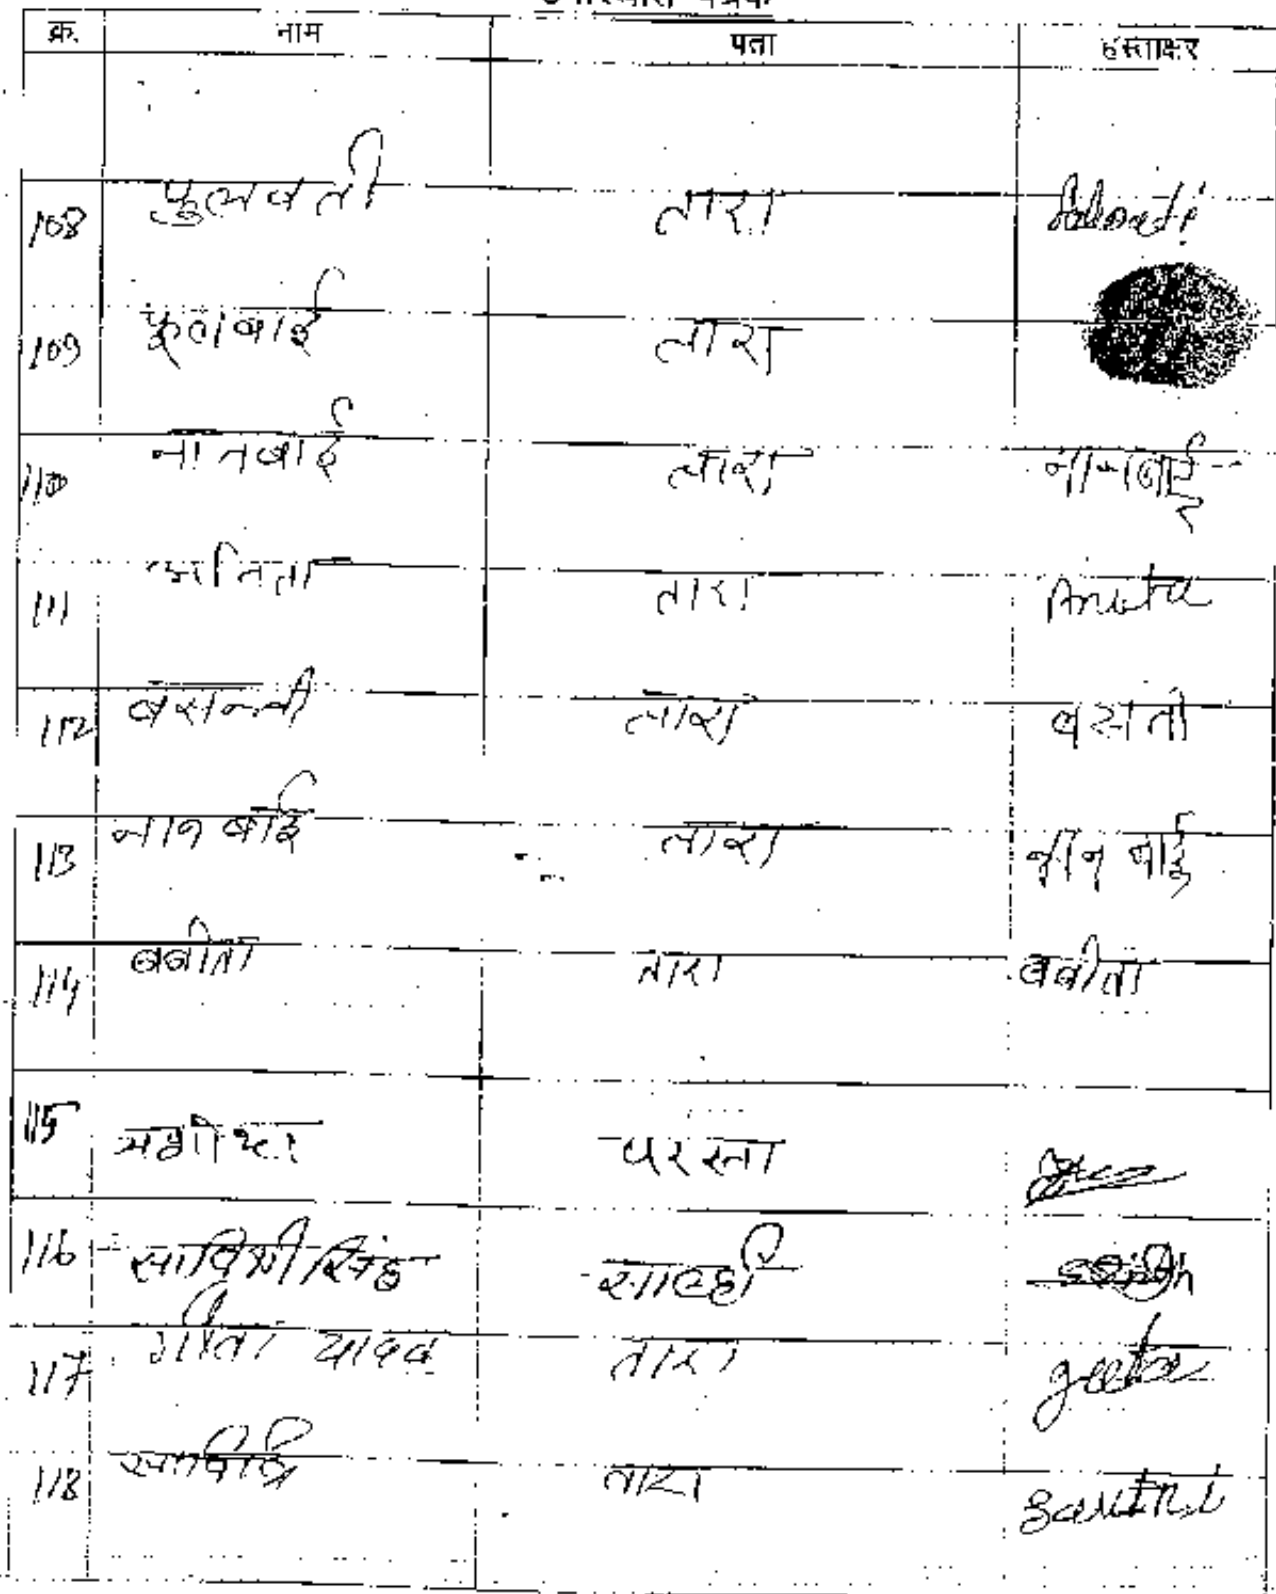 क्र. नाम पता हस्ताक्षर
108 फुलवती तारा
109 फूलबाई तारा
110 नानबाई तारा नानबाई
111 अनिता तारा Anita
112 बसन्ती तारा बसंती
113 नान बाई तारा नान बाई
114 बबीता तारा बबीता
115 परसता
116 सावित्री सिंह साल्ही
117 गीता यादव तारा geeta
118 सावित्रि तारा Savitri